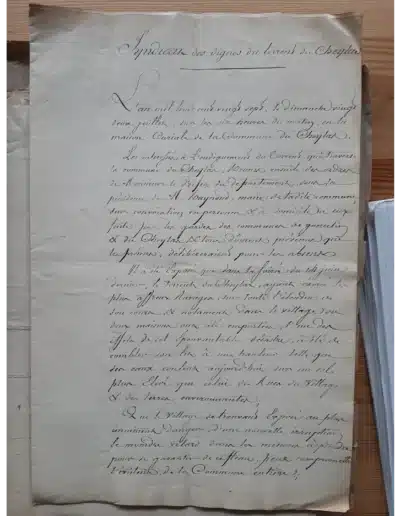 Syndicat des digues du torrent du Cheylas
L'an mil huit cent vingt sept, le dimanche vingt
deux juillet, sur les dix heures du matin en la
maison Curiale de la Commune du Cheylas.
Les intéressés à l'endiguement du Torrent qui traverse
la commune du Cheylas, Réunis
de Monsieur le Préfet du département, sous la
présidence de M. maire
sur convocation en personne & à domicile
faite par les gardes des communes de
& du Cheylas &
les présents, délibéreront pour les absents
Il a été Exposé que dans la
dernier le Torrent du Cheylas, ayant causé les
plus affreux Ravages sur toute l'étendue de
son cours & notamment dans le village où
deux maisons ont été emportées, l'un des
effets de cet épouvantable désastre, a été de
combler son lit à une hauteur telle que
ses eaux coulent aujourd'hui sur un sol
plus Elevé que celui des Rues du Village
& des terres environnantes;
Que le Village se trouvant Exposé au plus
imminent danger d'une nouvelle irruption
le moindre retard dans les mesures à prendre
pour se garantir de ce fléau peut compromettre
l'existence de la Commune entière;